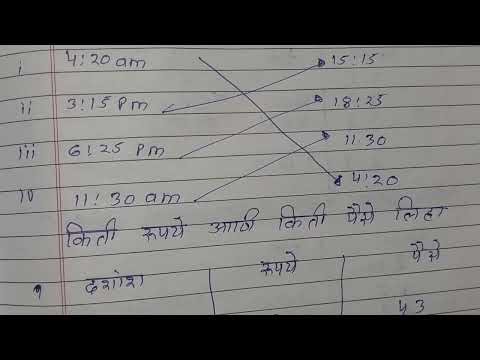 i 4:20 am 15:15
ii 3:15 pm 18:25
iii 6:25 pm 11:30
iv 11:30 am 4:20
किती रुपये आणि किती पैसे लिहा
१ दशांश रुपये पैसे
43